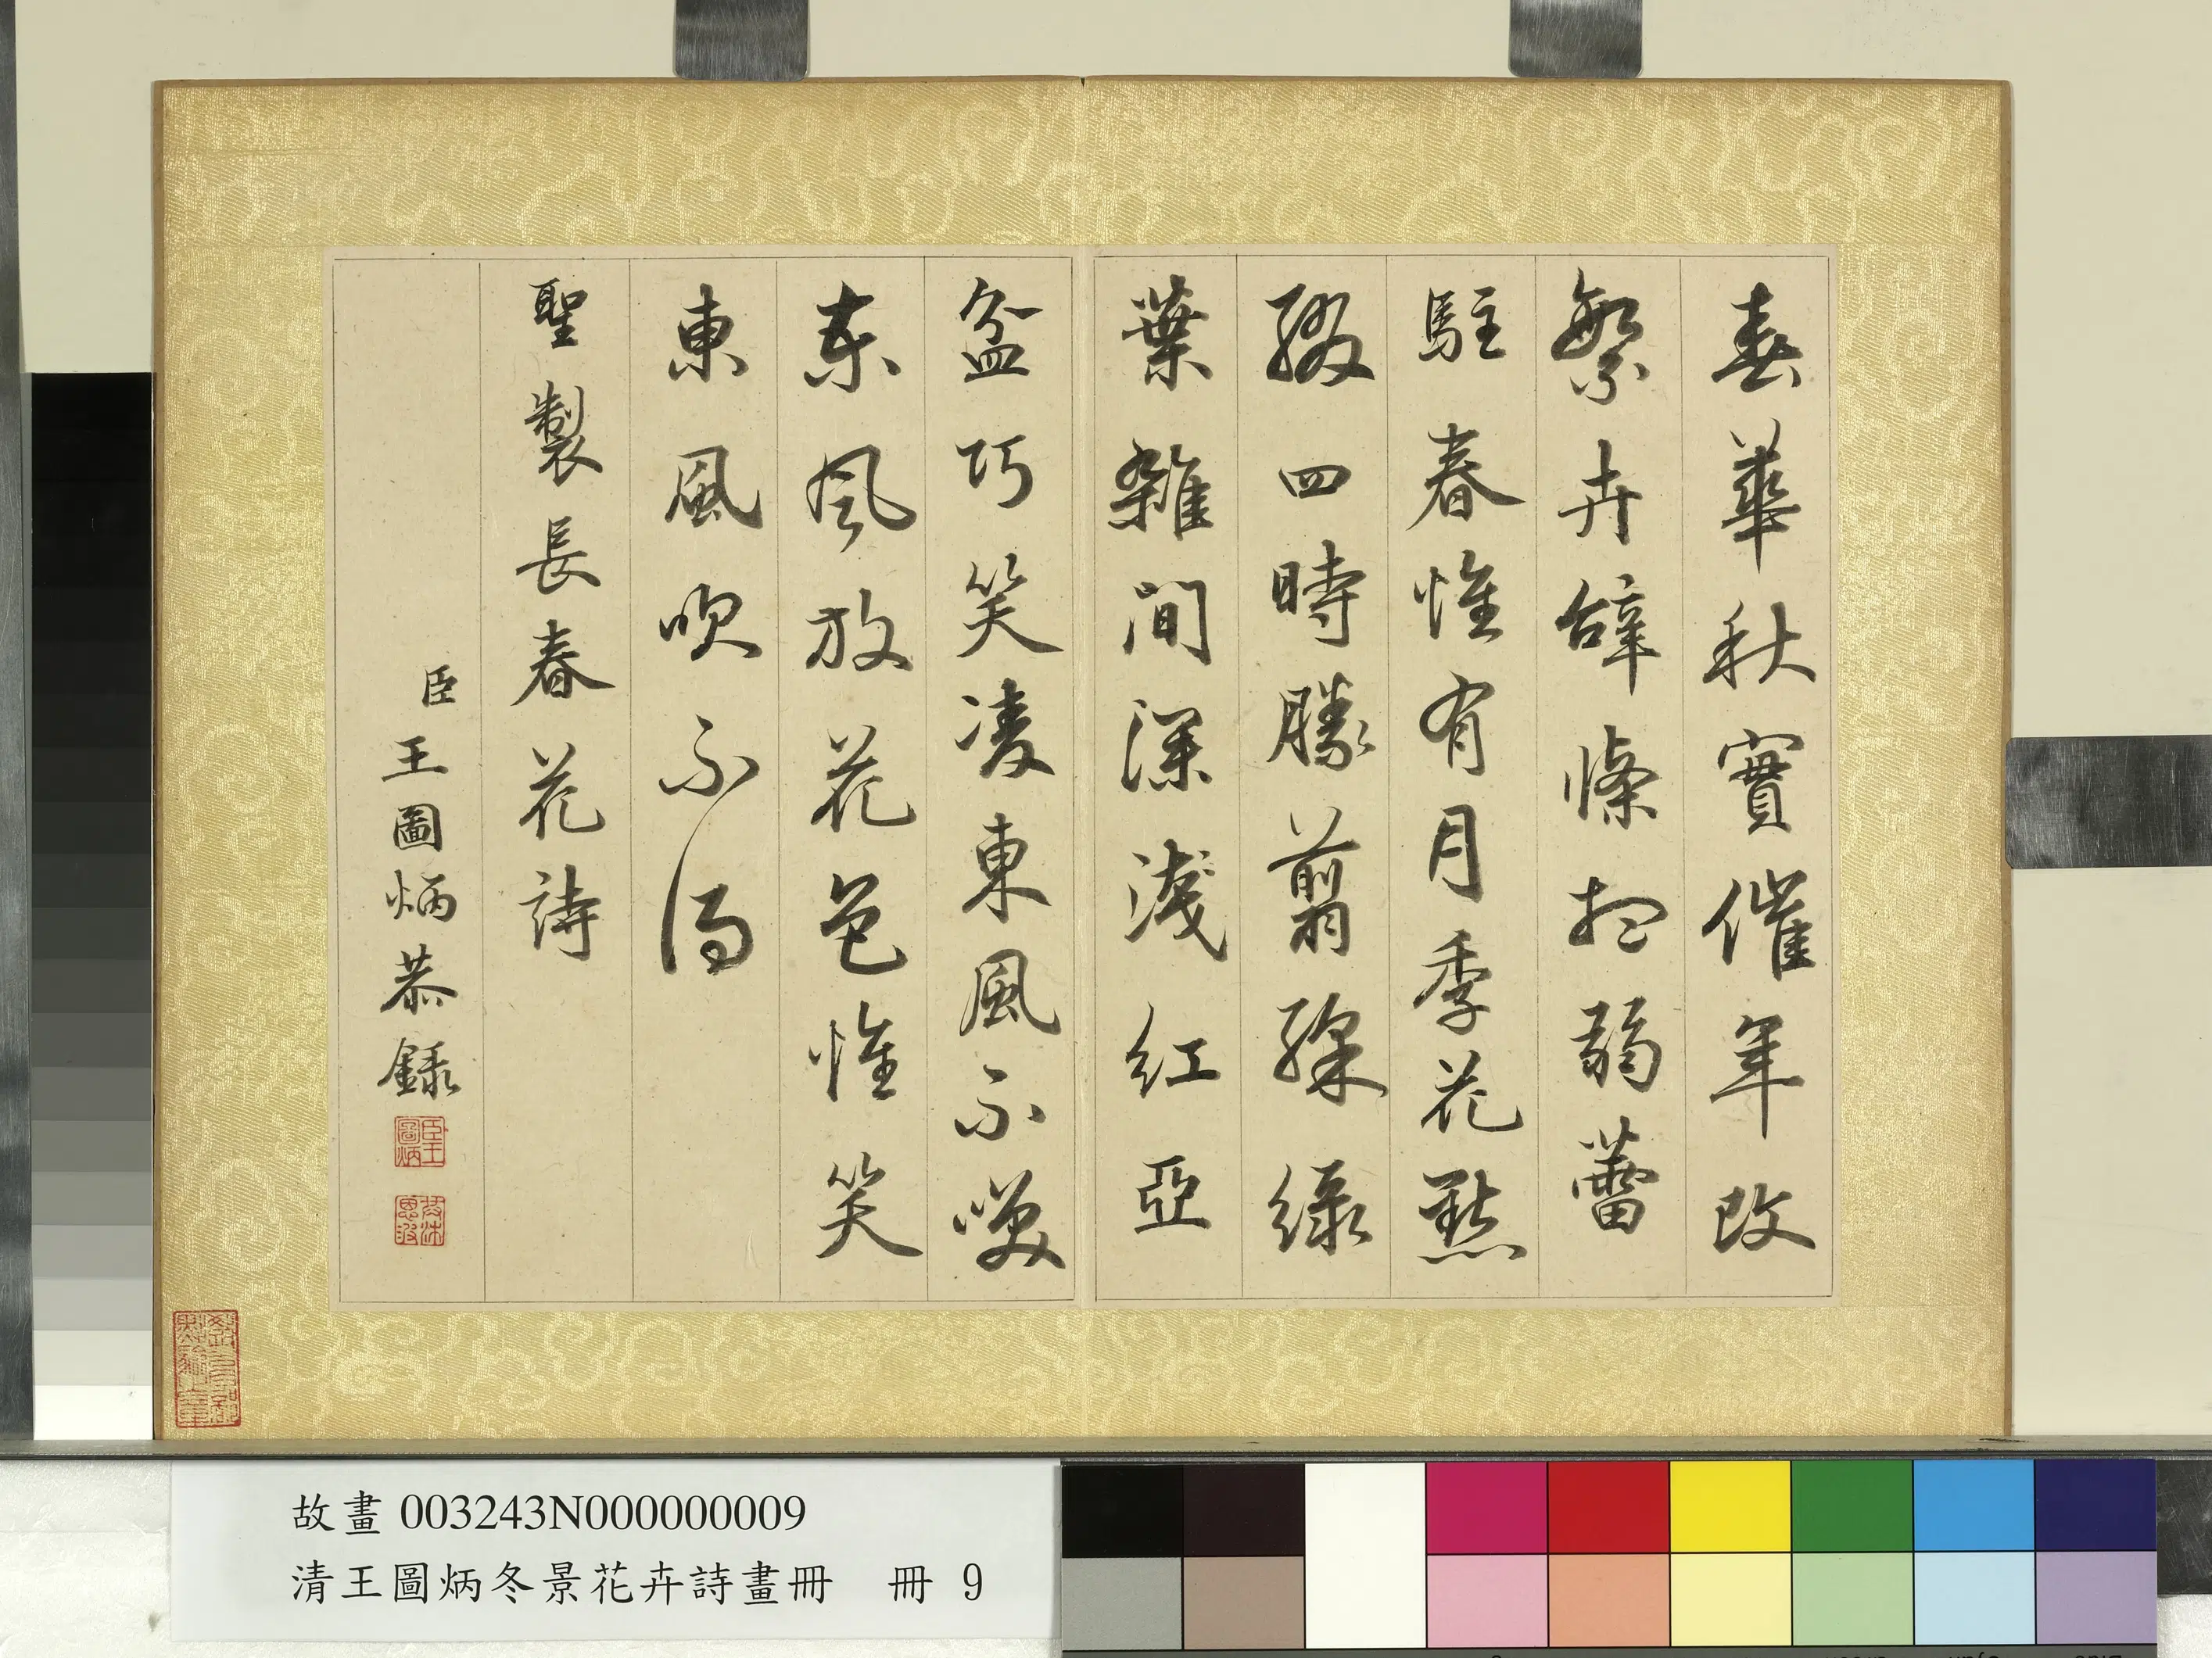 春華秋實催年改
繁卉辭條抽弱蕾
駐春惟有月季花點
綴四時勝翦綵綠
葉雜間深淺紅亞
盆巧笑凌東風不喚
東風放花色惟笑
東風吹不得
聖製長春花詩
臣王圖炳恭錄
臣王圖炳
故畫 003243N000000009
清王圖炳冬景花卉詩畫冊 冊 9